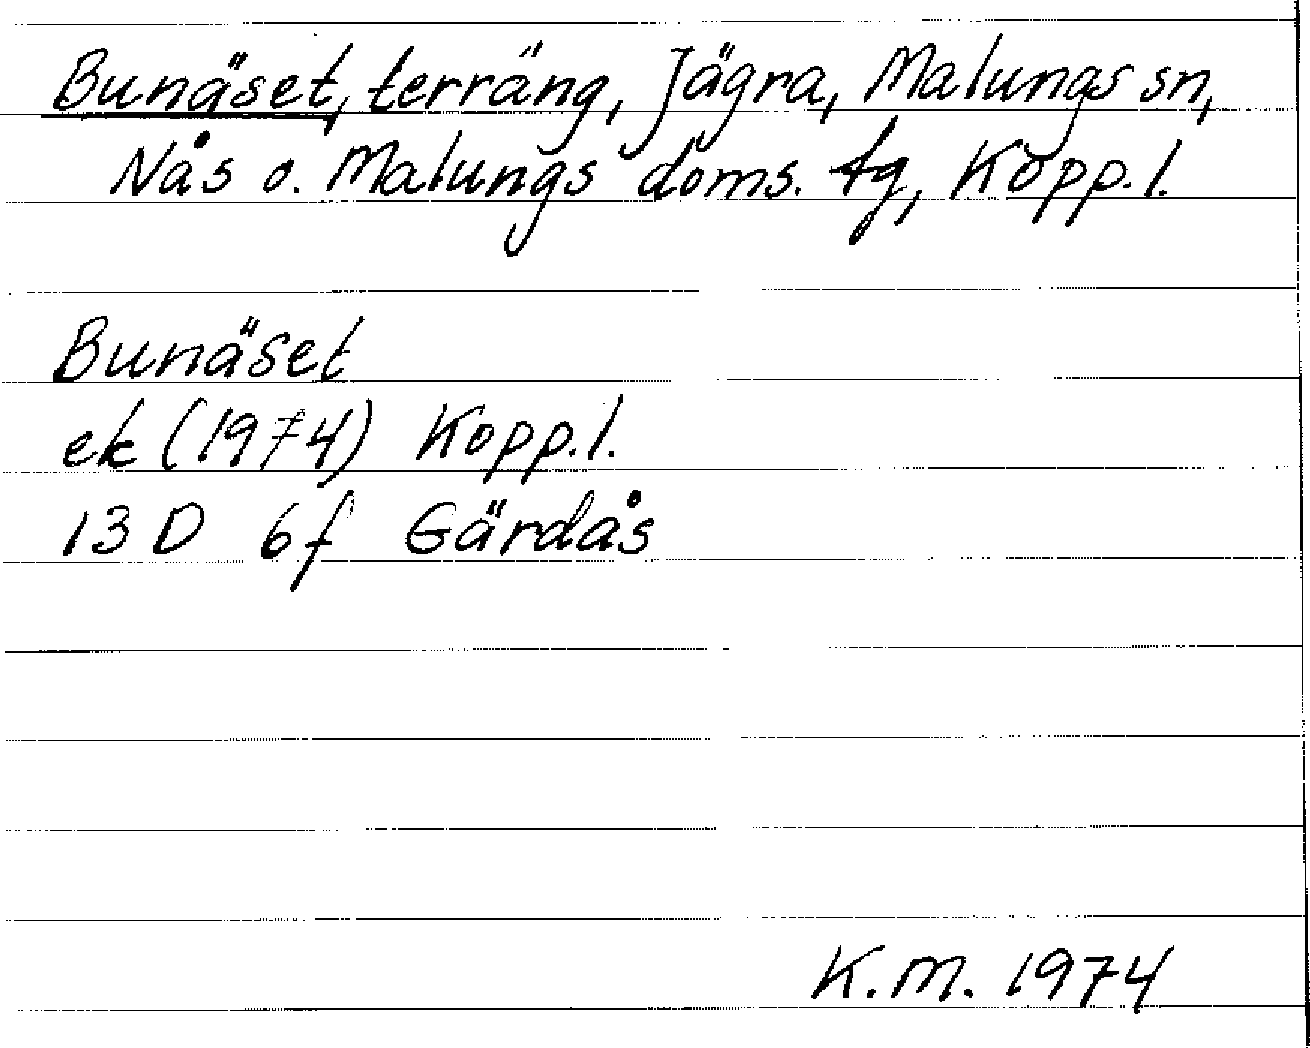 Bunäset, terräng, Jägra, Malungs sn,
Nås o. Malungs doms. tg, Kopp. l.
Bunäset
ek (1974) Kopp. l.
13 D 6f Gärdås
K.M. 1974